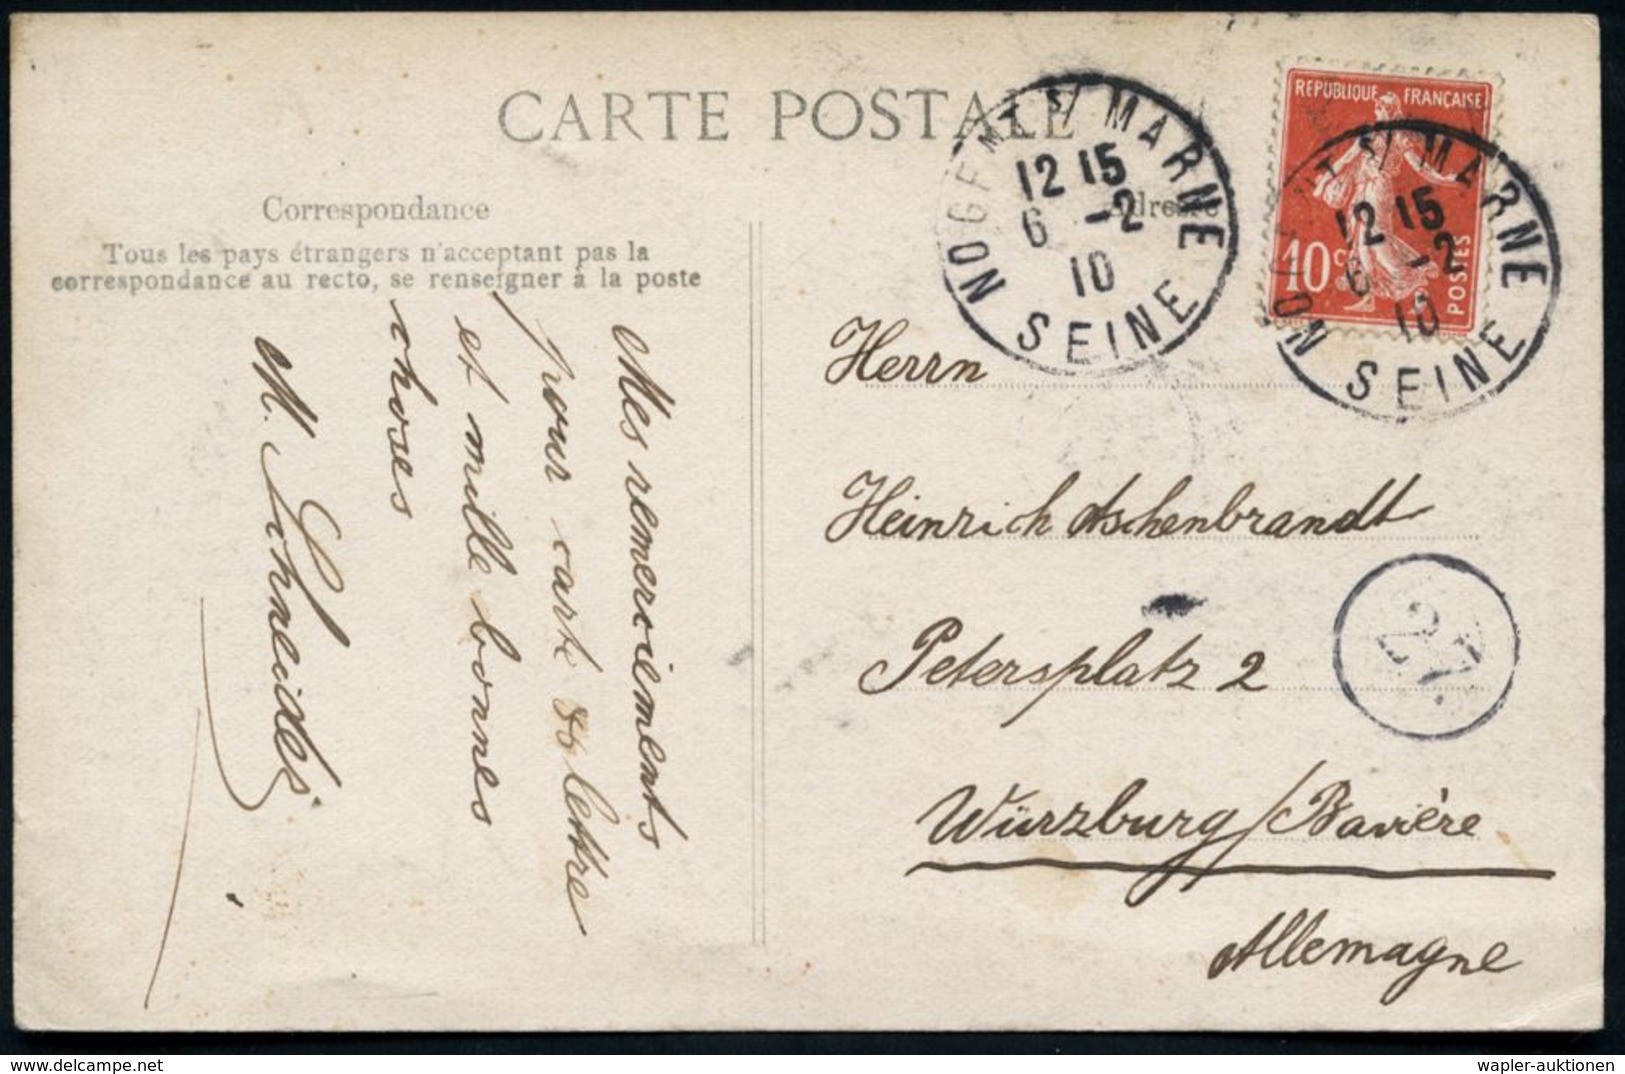 CARTE POSTALE
Correspondance
Tous les pays étrangers n'acceptant pas la
correspondance au recto, se renseigner à la poste
Mes remerciements
pour carte & lettre
et mille bonnes
choses
M. Schneider
Adresse
NOGENT S/ MARNE
12 15
6 -2
10
SEINE
REPUBLIQUE FRANÇAISE
10 c.
POSTES
NOGENT S/ MARNE
12 15
6 -2
10
SEINE
Herrn
Heinrich Aschenbrandt
Petersplatz 2
27.
Würzburg/Bavière
Allemagne
wapler-auktionen